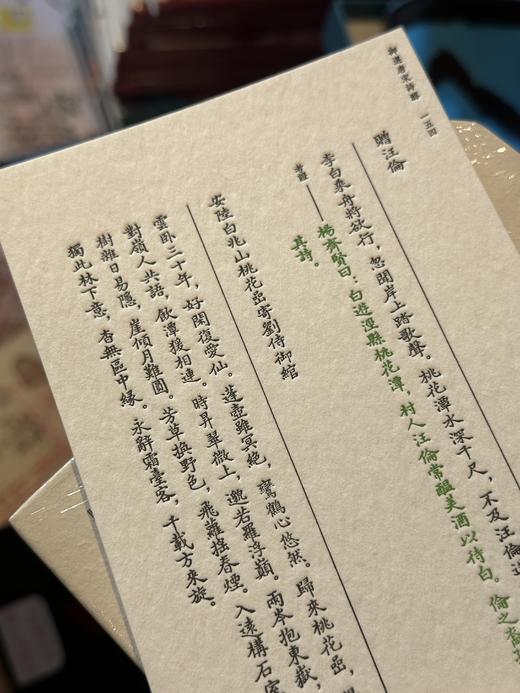 御選唐宋詩醇 一五四
贈汪倫
李白乘舟將欲行，忽聞岸上踏歌聲。桃花潭水深千尺，不及汪倫送
考證——楊齊賢曰：白遊涇縣桃花潭，村人汪倫常醞美酒以待白。倫之裔
其詩。
安陸白兆山桃花喦寄劉侍御綰
雲卧三十年，好閑復愛仙。蓬壺雖冥絶，鸞鶴心悠然。歸來桃花喦，
對嶺人共語，飲潭猨相連。時昇翠微上，邈若羅浮巔。兩岑抱東嶽，
樹雜日易隱，崖傾月難圓。芳草換野色，飛蘿搖春煙。入遠構石室
獨此林下意，杳無區中緣。永辭霜臺客，千載方來旋。